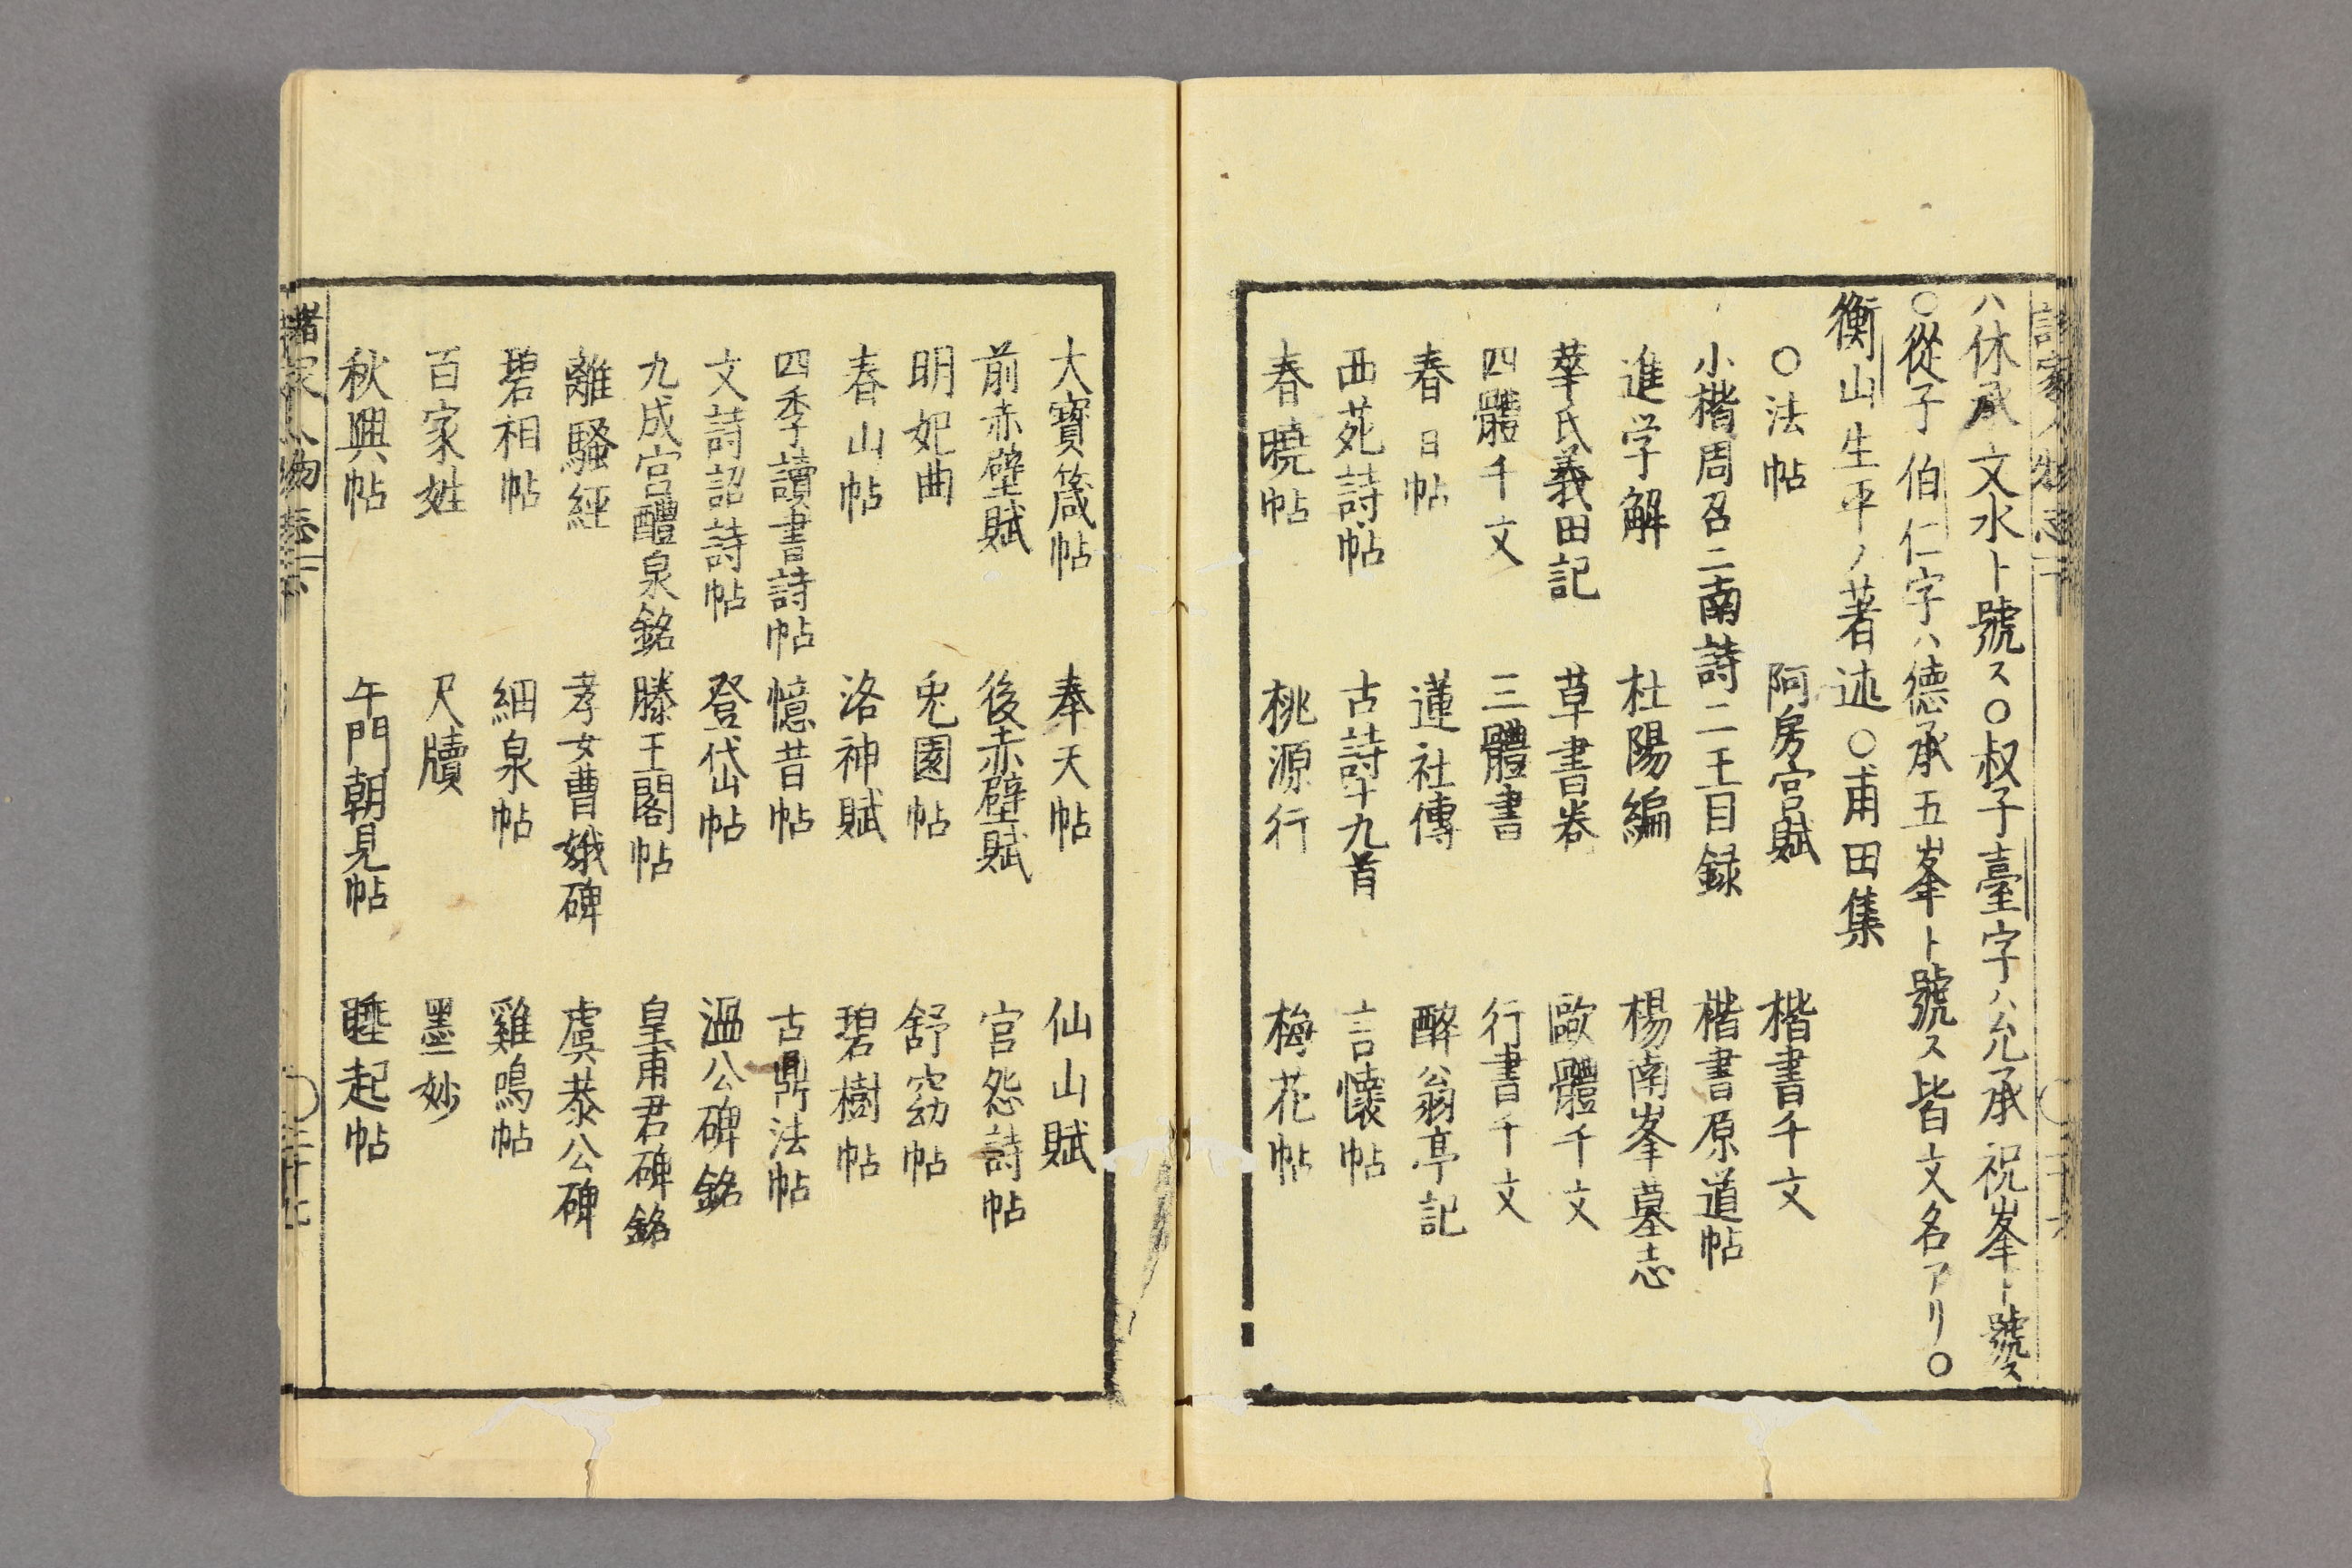 諸家人物志下
ハ休承文水ト號ス○叔子臺字ハ允承祝峯ト號ス
○從子伯仁字ハ德承五峯ト號ス皆文名アリ○
衡山生平ノ著述○甫田集
○法帖 阿房宮賦 楷書千文
小楷周召二南詩二王目録 楷書原道帖
進学解 杜陽編 楊南峯墓志
華氏義田記 草書卷 歐體千文
四體千文 三體書 行書千文
春日帖 蓮社傳 醉翁亭記
西苑詩帖 古詩十九首 言懷帖
春曉帖 桃源行 梅花帖
大寶箴帖 奉天帖 仙山賦
前赤壁賦 後赤壁賦 宮怨詩帖
明妃曲 兎園帖 舒窈帖
春山帖 洛神賦 碧樹帖
四季讀書詩帖 憶昔帖 古鼎法帖
文詩詔詩帖 登岱帖 溫公碑銘
九成宮醴泉銘 滕王閣帖 皇甫君碑銘
離騷經 孝女曹娥碑 虞恭公碑
碧相帖 細泉帖 雞鳴帖
百家姓 尺牘 墨妙
秋興帖 午門朝見帖 睡起帖
諸家人物志 三十七